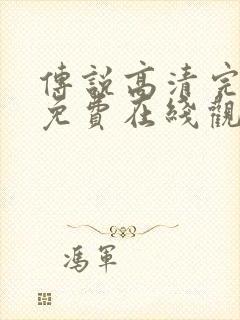 傳說高清完
免費在綫觀
馮軍